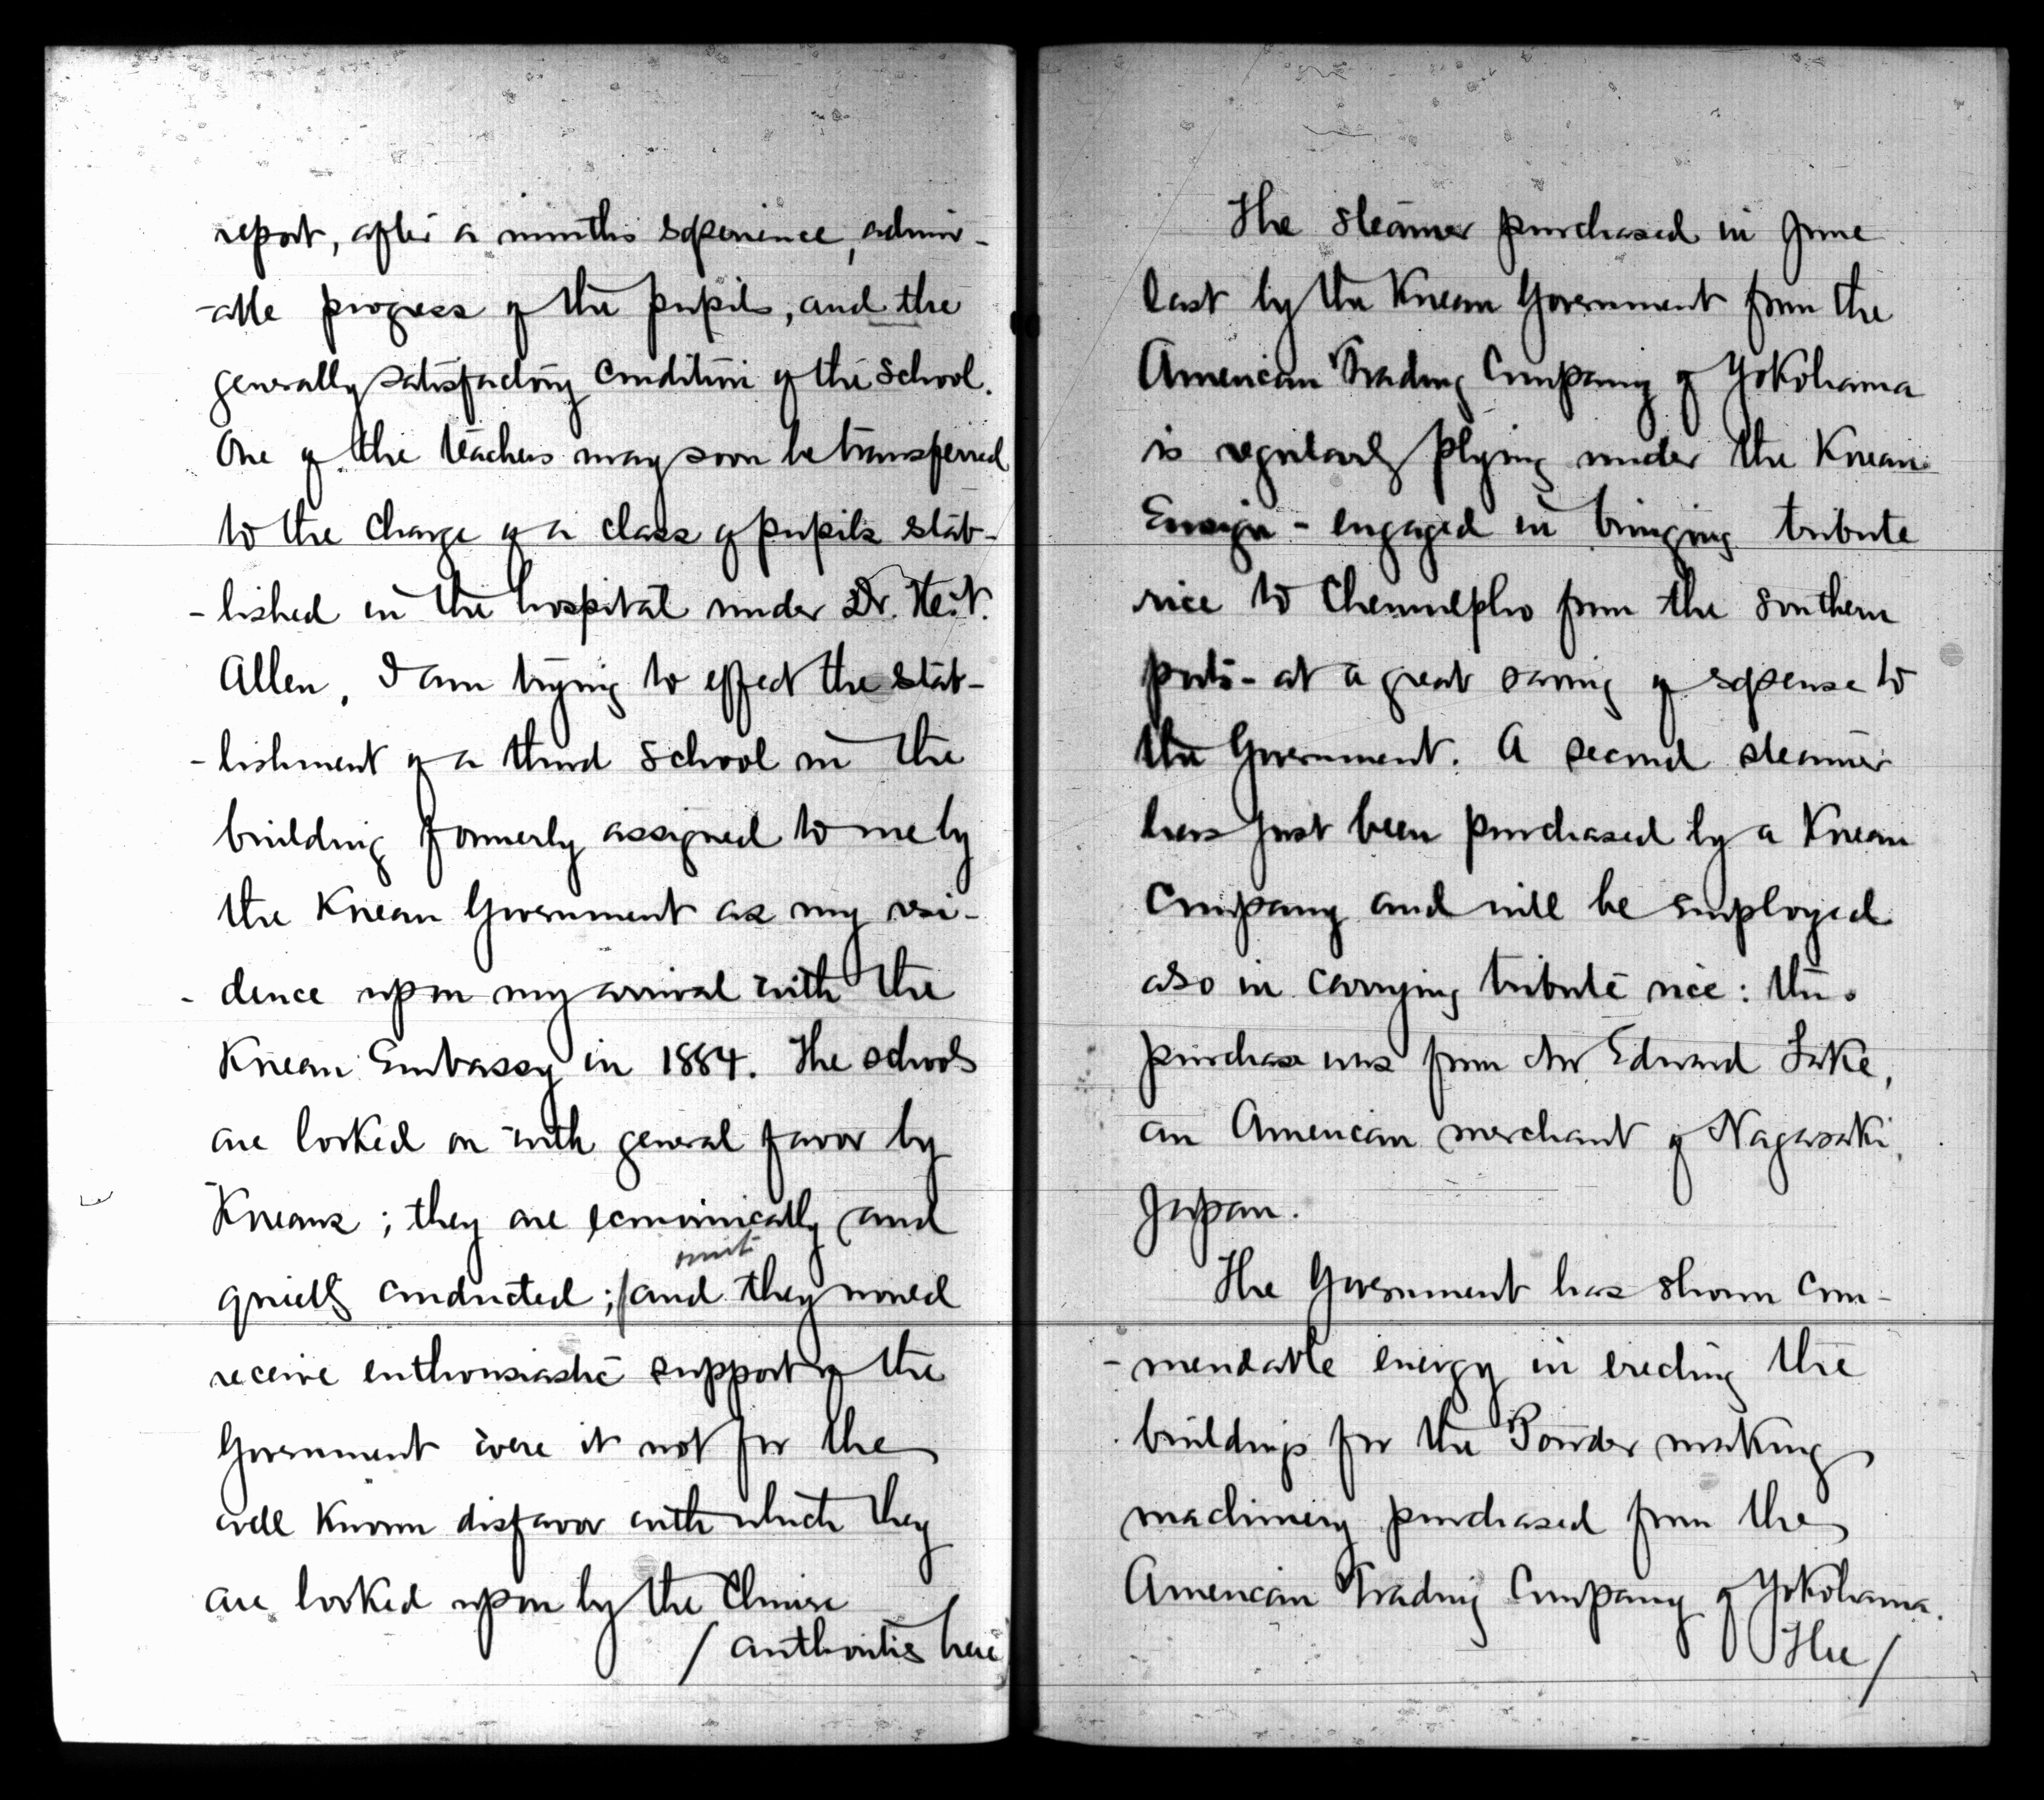 report, after a months experience, admir-
-able progress of the pupils, and the
generally satisfactory condition of the School.
One of the teachers may soon be transferred
to the charge of a class of pupils estab-
-lished in the hospital under Dr.
Allen, I am trying to effect the estab-
-lishment of a third school in the
building formerly assigned to me by
the Korean Government as my resi-
-dence upon my arrival with the
Korean Embassy in 1884. The schools
are looked on with general favor by
Koreans; they are economically and
omit
quietly conducted; / and they would
receive enthousiastic support of the
Government were it not for the
well known disfavor with which they
are looked upon by the Chinese
/ authorities here
The steamer purchased in June
last by the Korean Government from the
American Trading Company of Yokohama
is regularly plying under the Korean
Ensign - engaged in bringing tribute
rice to Chemulpho from the southern
ports - at a great saving of expense to
the Government. A second steamer
has just been purchased by a Korean
Company and will be employed
also in carrying tribute rice: this
purchase was from Mr Edward Lake,
an American merchant of Nagasaki,
Japan.
The Government has shown com-
-mendable energy in erecting the
buildings for the Powder making
machinery purchased from the
American Trading Company of Yokohama.
The /